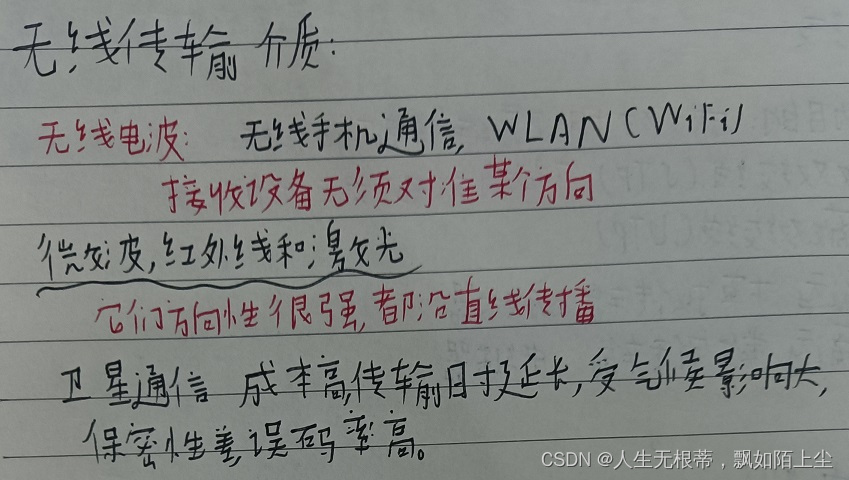 无线传输介质:
无线电波: 无线手机通信, WLAN(WiFi)
接收设备无须对准某个方向
微波,红外线和激光
它们方向性很强,都沿直线传播
卫星通信 成本高,传输时延长,受气候影响大,
保密性差,误码率高。
CSDN @人生无根蒂，飘如陌上尘